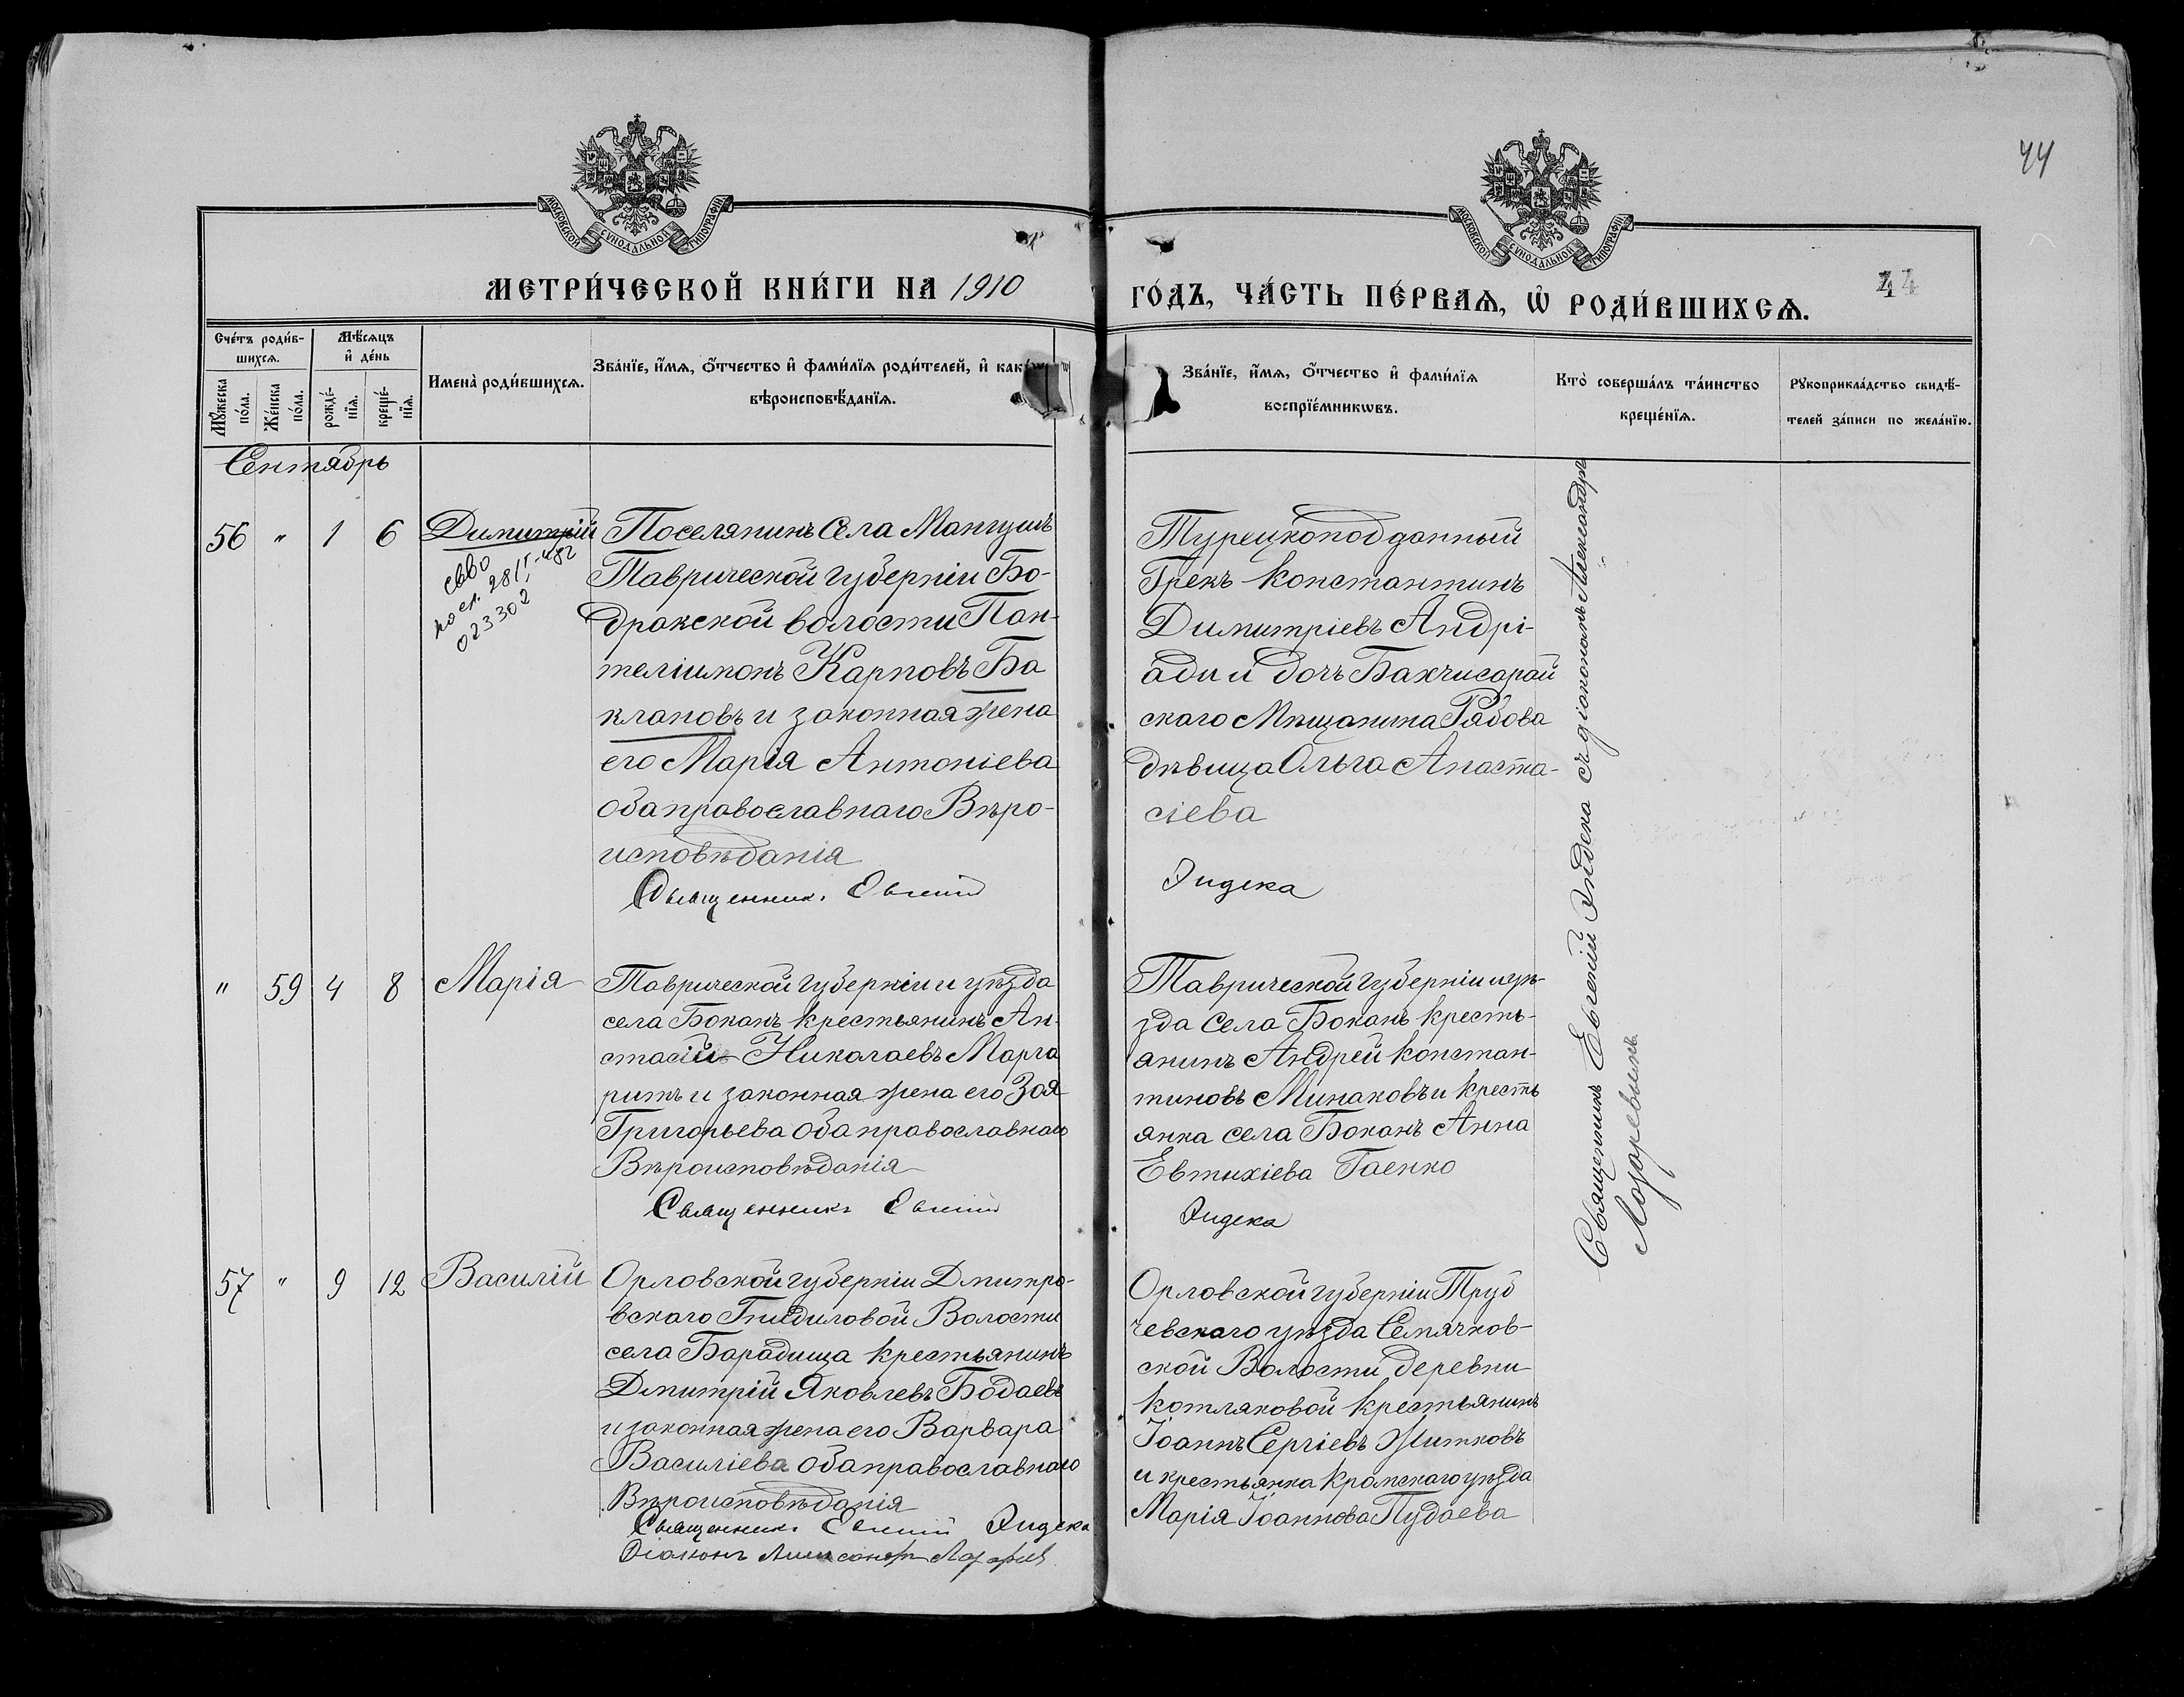 44
МОСКОВСКОЙ СѴНОДАЛЬНОЙ ТИПОГРАФІИ
МОСКОВСКОЙ СѴНОДАЛЬНОЙ ТИПОГРАФІИ
МЕТРИ́ЧЕСКОЙ КНИ́ГИ НА 1910
ГО́ДЪ, ЧА́СТЬ ПЕ́РВАѦ, Ѡ҆ РОДИ́ВШИХСѦ.
44
Сче́тъ роди́в-
шихсѧ.
Мѣ́сѧцъ
и҆ де́нь
Мꙋ́жеска
по́ла.
Же́нска
по́ла.
рожде́-
нїѧ.
креще́-
нїѧ.
Имена̀ роди́вшихсѧ.
Зва́нїе, и҆́мѧ, ѻ҆́тчество и҆ фами́лїѧ роди́телей, и҆ како́гѡ
вѣроисповѣ́данїѧ.
Зва́нїе, и҆́мѧ, ѻ҆́тчество и҆ фами́лїѧ
воспрїе́мникѡвъ.
Кто̀ соверша́лъ та́инство
креще́нїѧ.
Рꙋкоприкла́дство свидѣ́-
телей за́писи по жела́нїю.
Сентябрь
56 " 1 6 Димитрій
свво
по ел. 281
023302
Поселянинъ Села Мангушъ
Таврической губерніи Бо-
дракской волости Пан-
теліимонъ Карповъ Ба
клановъ и законная жена
его Марія Антоніева
оба православнаго Вѣро-
исповѣданія
Священникъ Евгеній
Турецкоподданный
Грекъ Константинъ
Димитріевъ Андрі-
ади и дочь Бахчисарай
скаго Мѣщанина Рябова
дѣвица Ольга Анаста-
сіева
Эндека
" 59 4 8 Марія
Таврической губерніи и уѣзда
села Боканъ крестьянинъ Ан-
стасій Николаевъ Марга
ритъ и законная жена его Зоя
Григорьева оба православнаго
Вѣроисповѣданія
Священникъ Евгеній
Таврической губерніи и уѣ-
зда села Боканъ кресть-
янинъ Андрей Констан-
тиновъ Минаковъ и кресть
янка села Боканъ Анна
Евтихіева Гаенко
Эндека
57 " 9 12 Василій
Орловской губерніи Дмитро-
вскаго Гнидиловой Волости
села Барадища крестьянинъ
Дмитрій Яковлевъ Бодаевъ
и законная жена его Варвара
Василіева оба православнаго
Вѣроисповѣданія
Священникъ Евгеній Эндека
Діаконъ Александръ Лазарев
Орловской губерніи Труб
чевскаго уѣзда Семячков-
ской Волости деревни
Котляковой крестьянинъ
Іоаннъ Сергіевъ Житковъ
и крестьянка Крамскаго уѣзда
Марія Іоаннова Пудаева
Священникъ Евгеній Эндека съ діакономъ Александр
Лазаревымъ